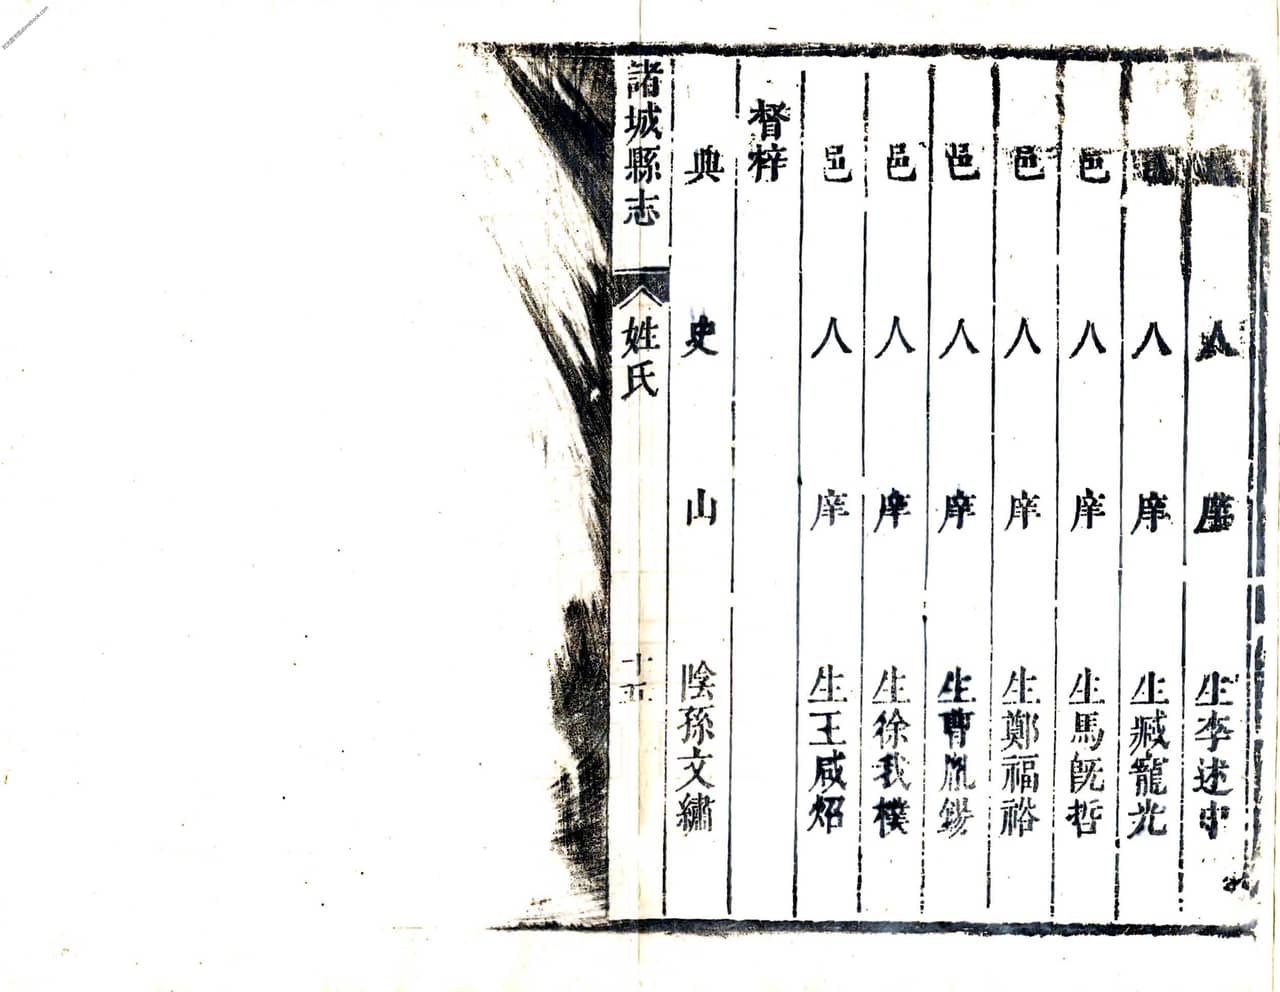 人庠生李述中
人庠生臧寵光
邑人庠生馬旣哲
邑人庠生鄭福裕
邑人庠生曹胤錫
邑人庠生徐我樸
邑人庠生王咸炤
督梓
典史山陰孫文繡
諸城縣志 姓氏 十五